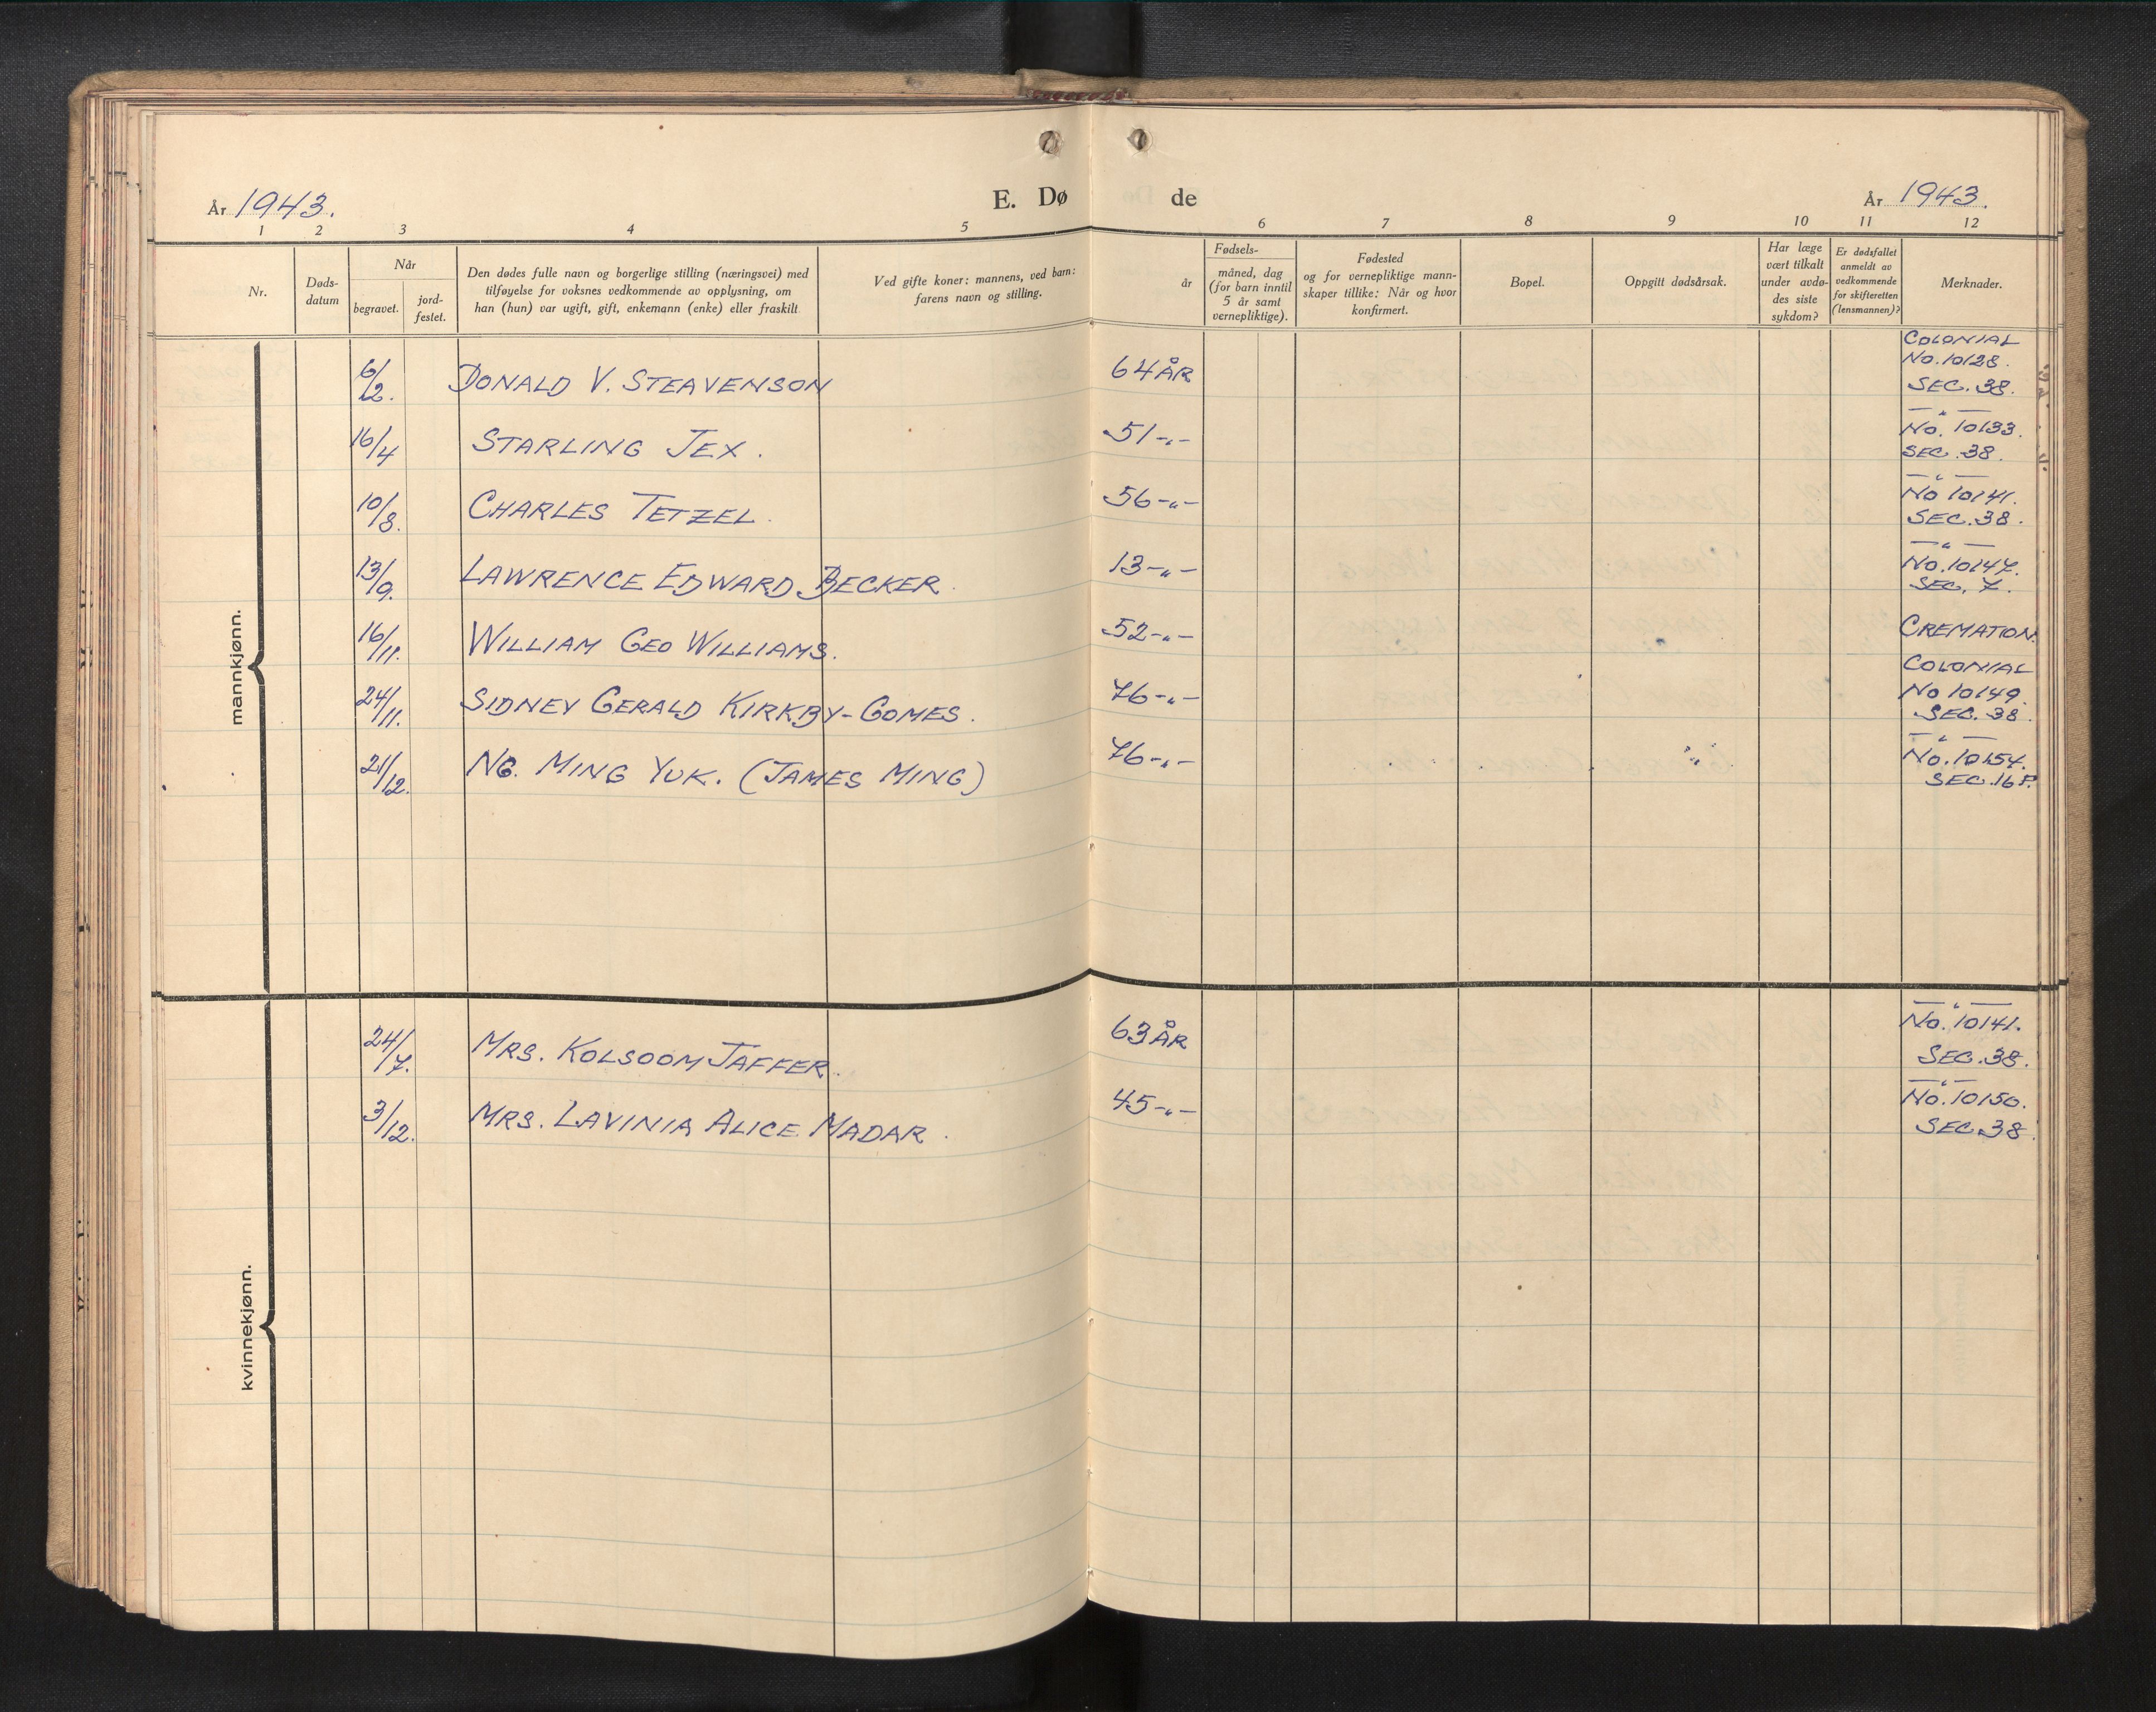 År 1943.
E. Døde
År 1943.
1 2 3 4 5 6 7 8 9 10 11 12
Nr.
Døds-
datum
Når
begravet.
jord-
festet.
Den dødes fulle navn og borgerlige stilling (næringsvei) med
tilføyelse for voksnes vedkommende av opplysning, om
han (hun) var ugift, gift, enkemann (enke) eller fraskilt
Ved gifte koner: mannens, ved barn:
farens navn og stilling.
Fødsels-
år
måned, dag
(for barn inntil
5 år samt
vernepliktige).
Fødested
og for vernepliktige mann-
skaper tillike: Når og hvor
konfirmert.
Bopel.
Oppgitt dødsårsak.
Har læge
vært tilkalt
under avdø-
des siste
sykdom?
Er dødsfallet
anmeldt av
vedkommende
for skifteretten
(lensmannen)?
Merknader.
mannkjønn.
6/2. DONALD V. STEAVENSON 64 ÅR COLONIAL
No. 10128.
SEC. 38.
16/4 STARLING JEX. 51 -"- -"-
No. 10133.
SEC. 38.
10/8. CHARLES TETZEL. 56 -"- -"-
No 10141.
SEC. 38.
13/9. LAWRENCE EDWARD BECKER. 13 -"- -"-
No. 10147.
SEC. 7.
16/11. WILLIAM GEO WILLIAMS. 52 -"- CREMATION.
24/11. SIDNEY GERALD KIRKBY-GOMES. 76 -"- COLONIAL
No 10149.
SEC. 38.
21/12. NG. MING YUK. (JAMES MING) 76 -"- -"-
No. 10154.
SEC. 16 F.
kvinnekjønn.
24/7. MRS. KOLSOOM JAFFER. 63 ÅR -"-
No. 10141.
SEC. 38.
3/12. MRS. LAVINIA ALICE MADAR. 45 -"- -"-
No. 10150.
SEC. 38.